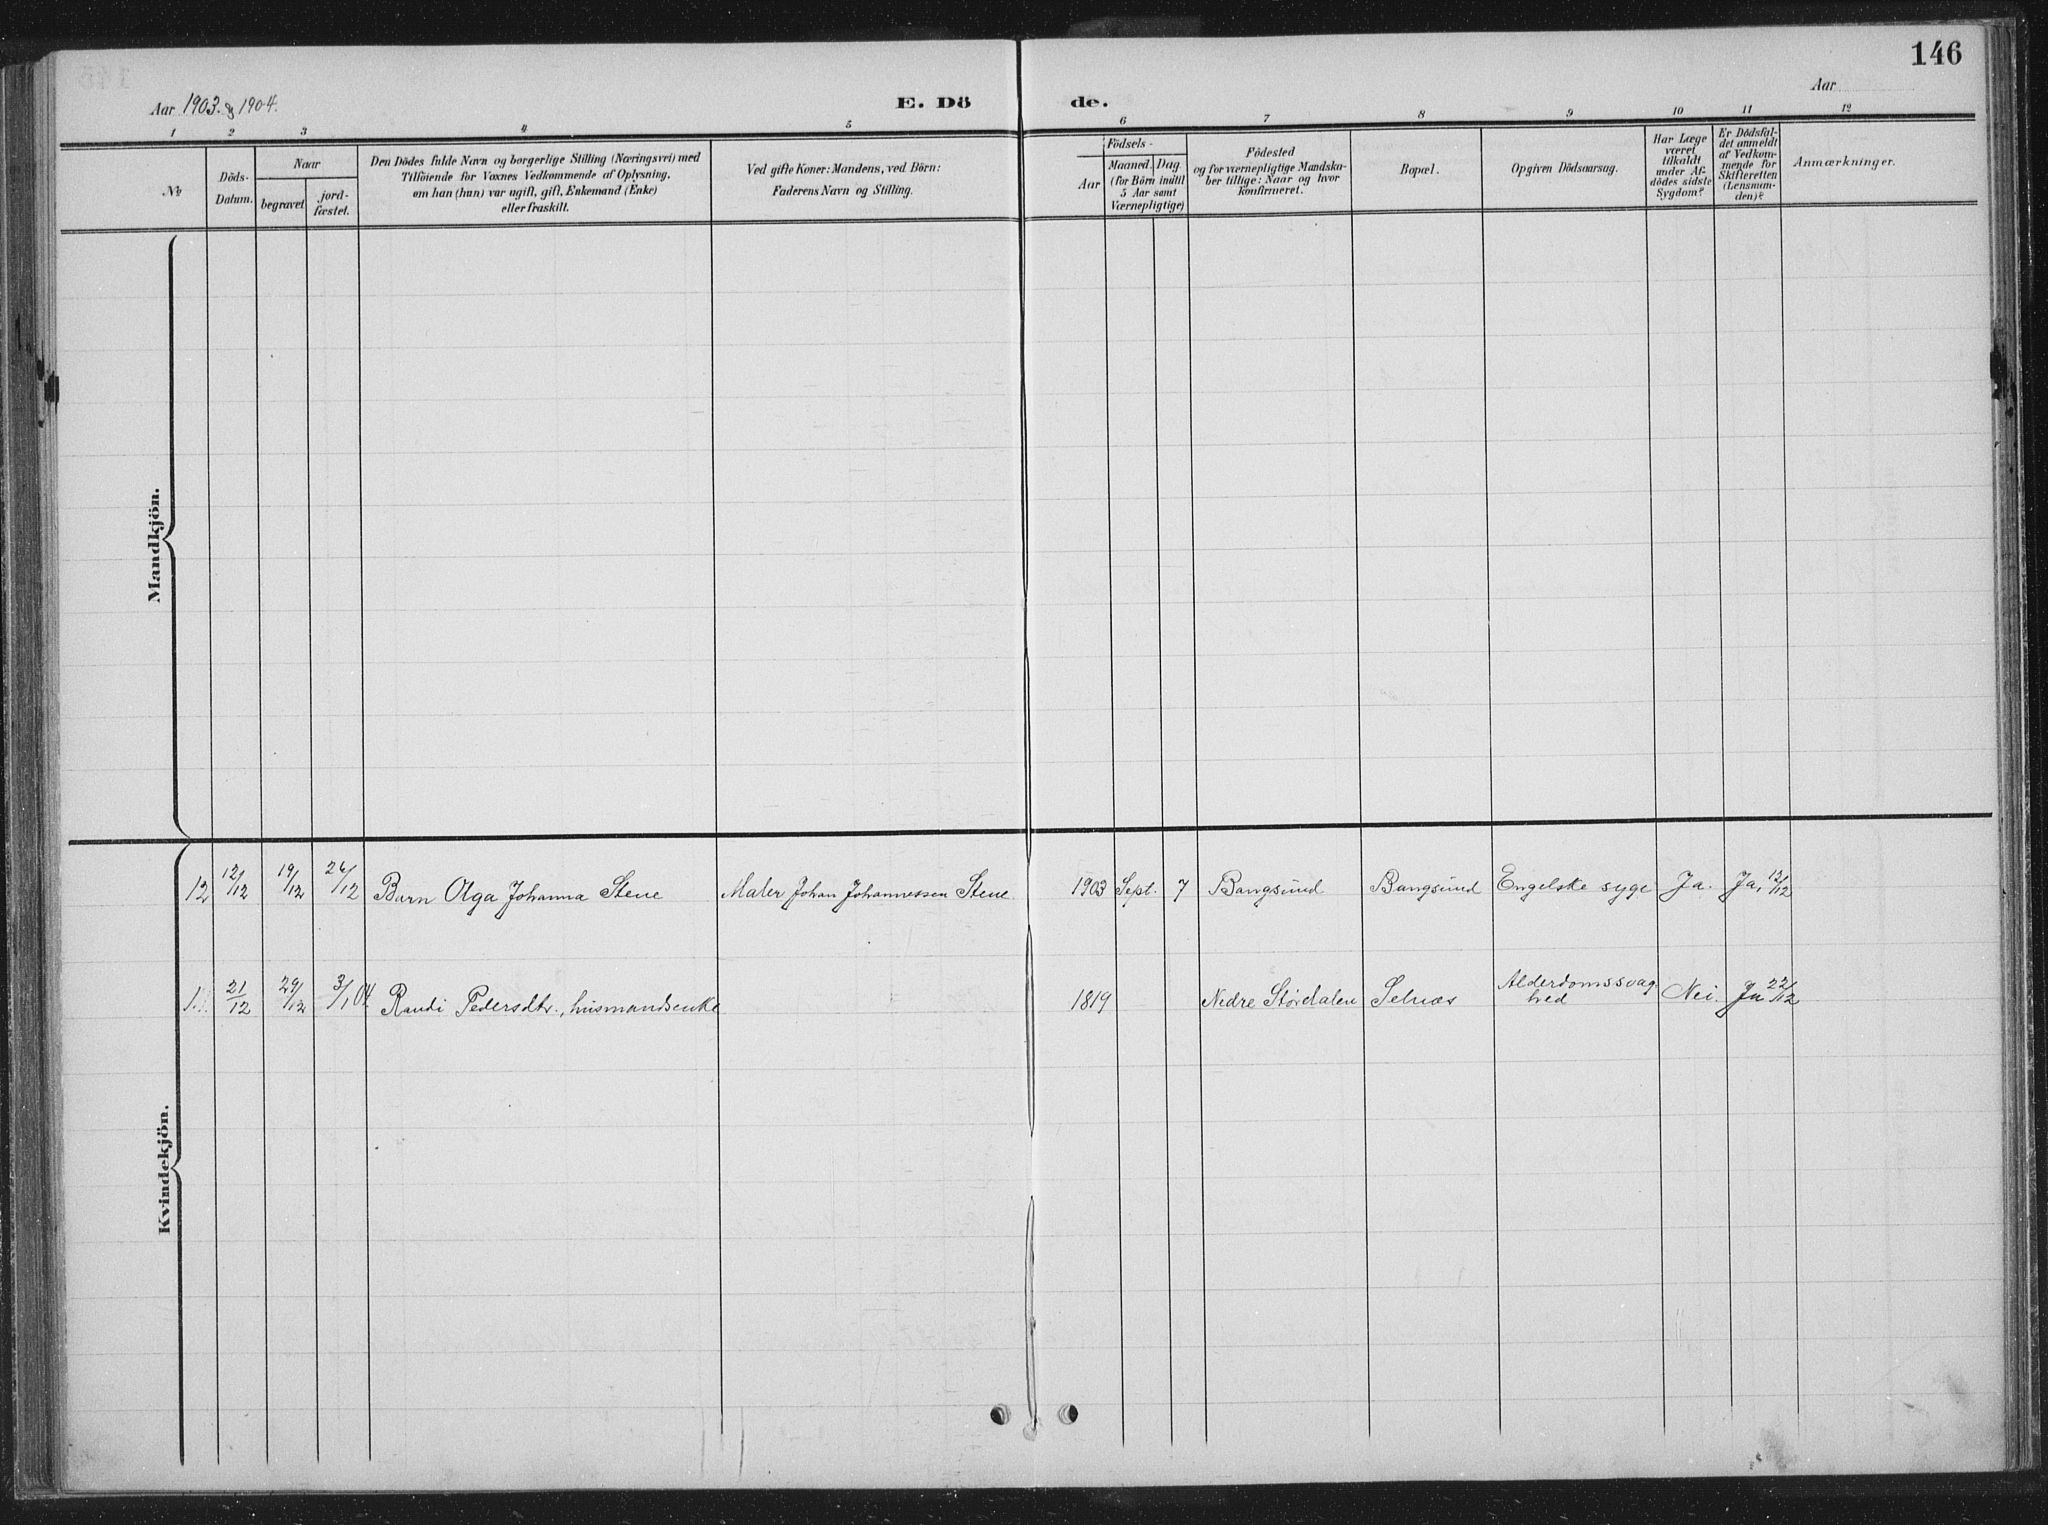 146
Aar 1903 & 1904.
E. Dö
de.
Aar
1 2 3 4 5 6 7 8 9 10 11 12
No
Döds-
Datum.
Naar
begravet
jord-
fæstet.
Den Dödes fulde Navn og borgerlige Stilling (Næringsvei) med
Tilföiende for Voxnes Vedkommende af Oplysning,
om han (hun) var ugift, gift, Enkemand (Enke)
eller fraskilt.
Ved gifte Koner: Mandens, ved Börn:
Faderens Navn og Stilling.
Födsels-
Aar
Maaned.
Dag
(for Börn indtil
5 Aar samt
Værnepligtige)
Födested
og for værnepligtige Mandska-
ber tillige: Naar og hvor
konfirmeret.
Bopæl.
Opgiven Dödsaarsag.
Har Læge
været
tilkaldt
under Af-
dödes sidste
Sygdom?
Er Dödsfal-
det anmeldt
af Vedkom-
mende for
Skifteretten
(Lensman-
den)?
Anmærkninger.
Mandkjön.
12 12/12 19/12 26/12 Barn Olga Johanna Stene Maler Johan Johannessen Stene. 1903 Sept. 7 Bangsund Bangsund Engelske syge Ja. Ja, 12/12
1. 21/12 29/12 3/1 04 Randi Pedersdtr., husmandsenke 1819 Nedre Størdalen Selnæs Alderdomssvag
hed Nei. Ja 22/12
Kvindekjön.